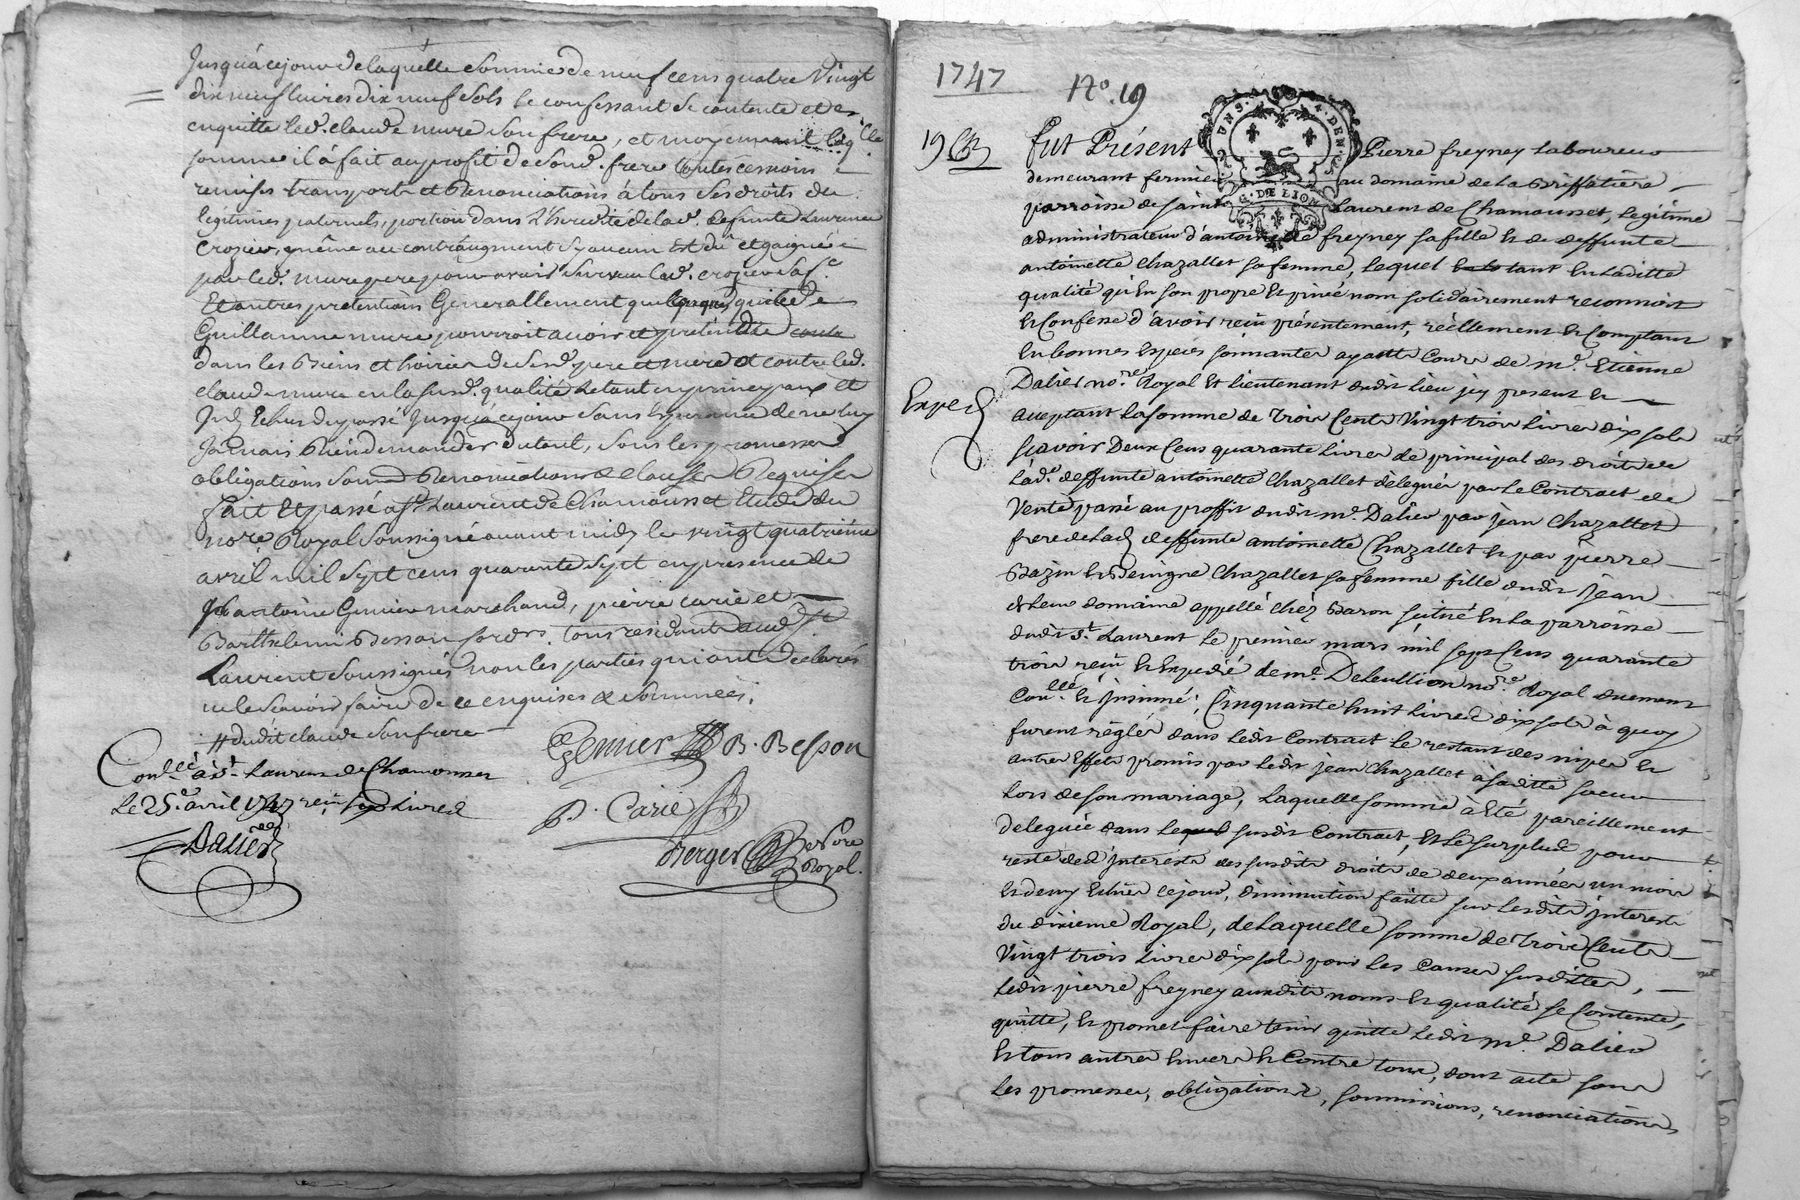 Jusqu'à ce jour de laquelle somme de neuf cens quatre vingt
dix neuf livres dix neuf sols se confessant se contente et en
quitte led. claude mure son frere, et moyennant lad.
somme il à fait au profit de sond. frere toutes cessions
remises transports et Renonciations à tous ses droits de
legitimes paternels, portion dans l'hoirie de lad. deffunte Laurence
Crozier, même au contraugment sy aucun est dû et gaigné
par led. mure pere pour avoir survecu lad. crozier sa fe
Et autres pretentions Generallement quelconques que led.
Guillaume mure pourroit avoir et pretendre
dans les Biens et hoiries de sesd. pere et mere et contre led.
claude mure en lasusd. qualité tant en principaux et
jusqu'à ce jour sans esperance de ne luy
Jamais Rien demander du tout, sous les promesses
obligations soumo. Renonciations et clauses Requises
fait Et passé a St Laurent de Chamousset Etude du
nore. Royal soussigné avant midy le vingt quatrieme
avril mil sept cens quarente sept en presence de
antoine Genier marchand, pierre carie et
Barthelemi Besson tous residants aud. St
Laurent soussignés non les parties qui ont declarés
ne le scavoir faire de ce enquises & sommées.
# dudit claude son frere
Genier B. Besson
Conllé à st. Laurent de Chamousset
Le 25e avril 1747 reçu livres
P. Carie
Dalier
Berger Nore
Royal.
1747
No. 19
UN. S. 4. DEN
G. DE LION
19
fut Présent Pierre freyney Laboureur
demeurant fermier au domaine de La Griffatiere,
parroisse de saint Laurent de Chamousset, legitime
administrateur d'antoinette freyney sa fille et de deffunte
antoinette Chazallet sa femme, lequel tant en laditte
qualité qu'en son propre et privé nom solidairement reconnoist
et Confesse d'avoir reçu présentement, réellement et Comptant
en bonnes especes sonnantes ayants Cours de me. Etienne
Dalier nore. Royal et lieutenant dudit lieu icy present et
Exped
acceptant la somme de trois Cents vingt trois livres dix sols
sçavoir Deux Cens quarante livres de principal des droits de
lade. deffunte antoinette Chazallet délegués par le Contract de
Vente passé au proffit dudit me. Dalier par jean Chazallet
frere de lad. deffunte antoinette Chazallet et par pierre
Bazin et Benigne Chazallet sa femme fille dudit jean
de leur domaine appellé chéz Baron scitué en la parroisse
dudit st. Laurent le premier mars mil sept cens quarante
trois reçu et Expedié de me. Deleullion nore. Royal duement
conllé. et insinué; Cinquante huit livres dix sols à quoy
furent réglés dans ledit Contract le restant des nipes et
autres effets promis par ledit jean Chazallet à saditte soeur
lors de son mariage, laquelle somme à été pareillement
deleguée dans le susdit Contract, et le surplus pour
reste des interests des susdits droits de deux années un mois
et demy echus ce jour, diminution faitte sur lesdits interests
du dixieme Royal, de laquelle somme de trois Cents
Vingt trois livres dix sols pour les Causes susdittes,
ledit pierre freyney ausdits noms et qualité se Contente,
quitte, et promet faire tenir quitte ledit me. Dalier
et tous autres envers et Contre tous, dont acte sous
les promesses, obligations, soumissions, renonciations